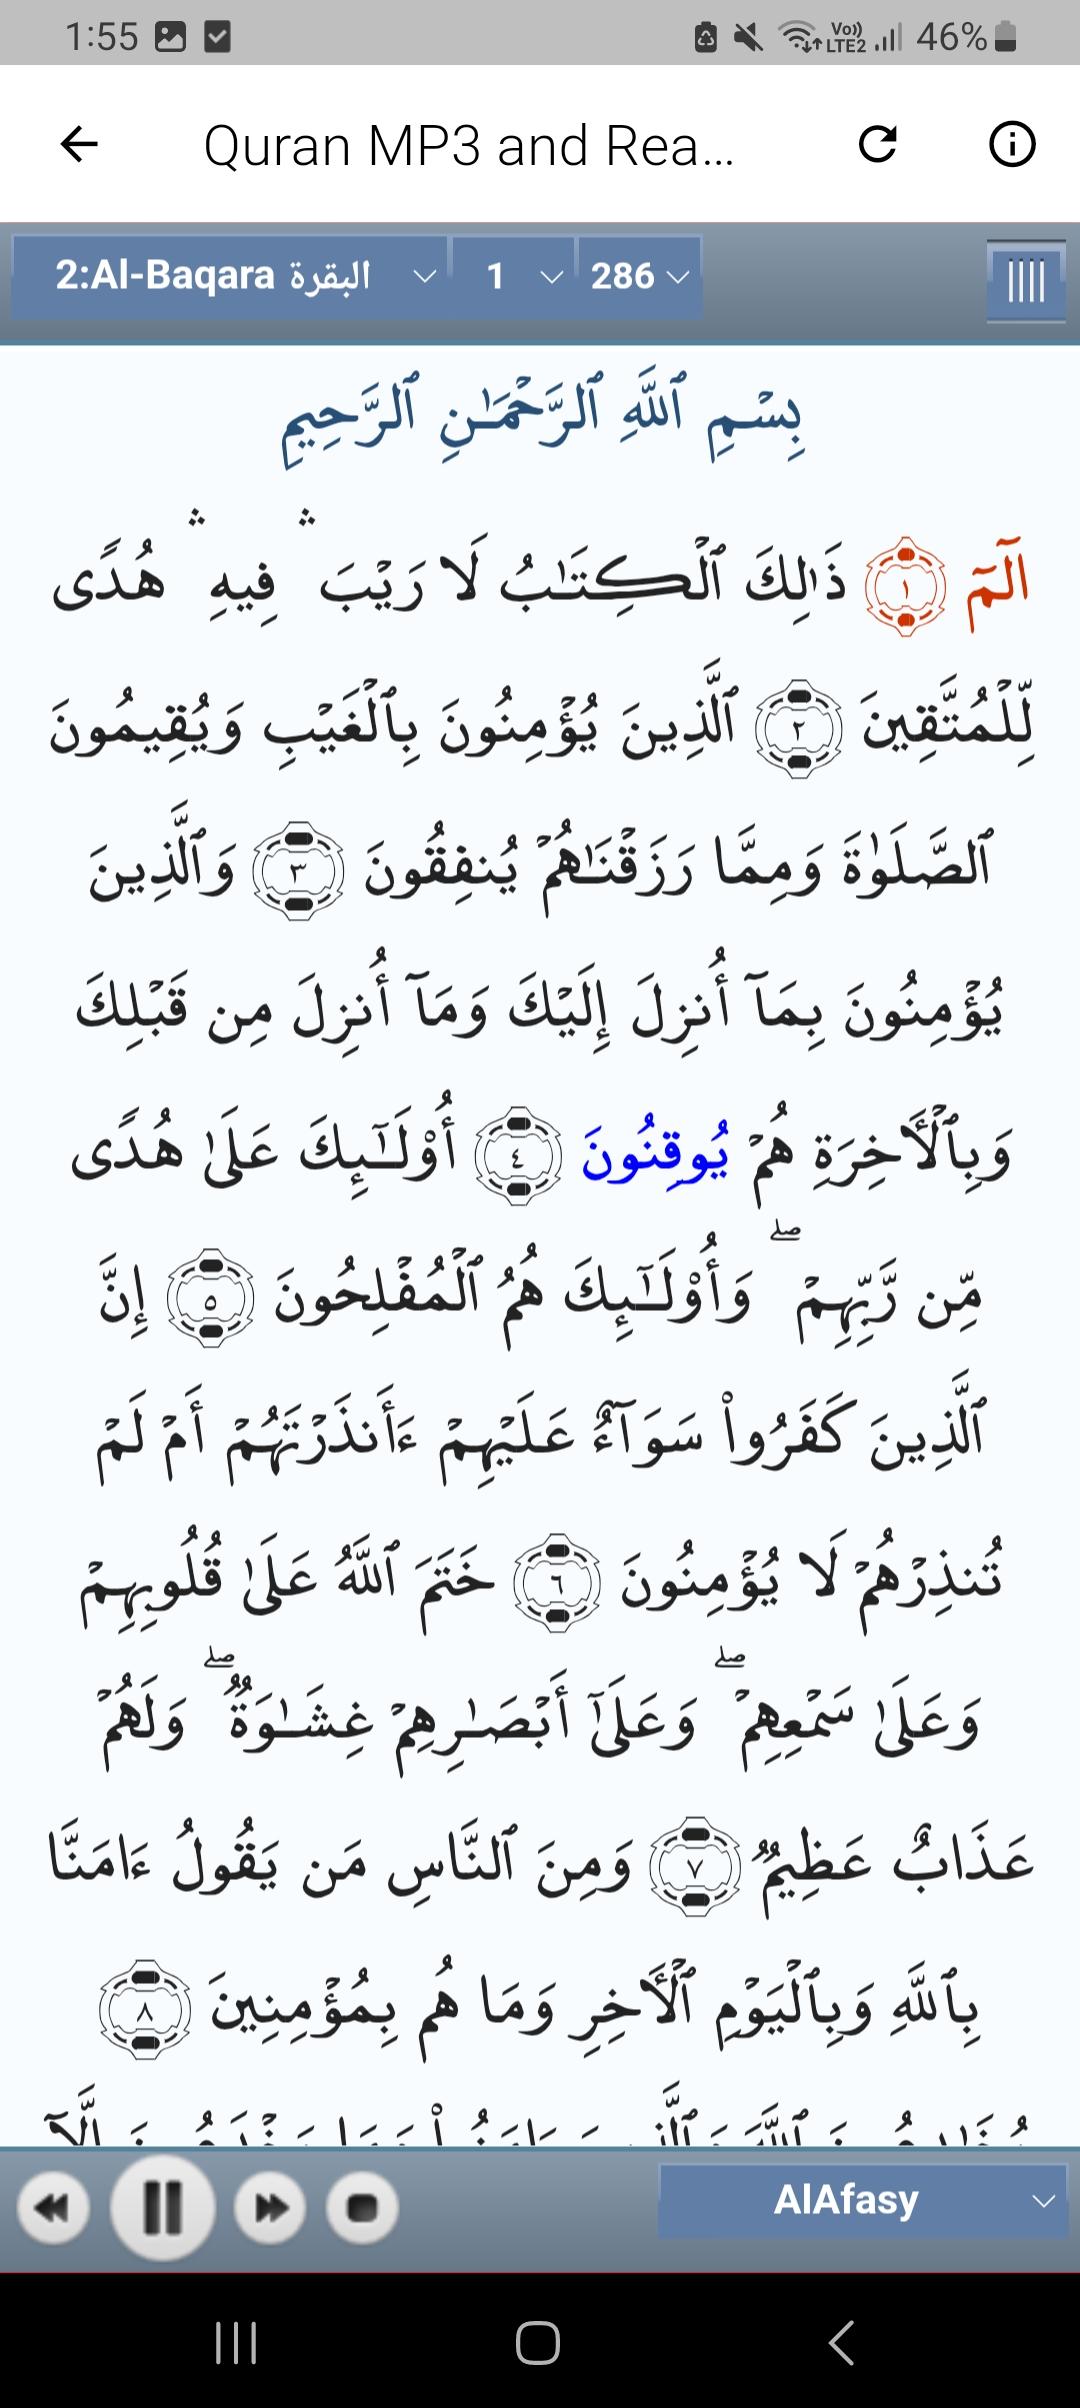 1:55 Vo)) LTE2 46%
Quran MP3 and Rea...
2:Al-Baqara البقرة 1 286
بِسْمِ ٱللَّهِ ٱلرَّحْمَـٰنِ ٱلرَّحِيمِ
الٓمٓ ١ ذَٰلِكَ ٱلْكِتَـٰبُ لَا رَيْبَ ۛ فِيهِ ۛ هُدًى
لِّلْمُتَّقِينَ ٢ ٱلَّذِينَ يُؤْمِنُونَ بِٱلْغَيْبِ وَيُقِيمُونَ
ٱلصَّلَوٰةَ وَمِمَّا رَزَقْنَـٰهُمْ يُنفِقُونَ ٣ وَٱلَّذِينَ
يُؤْمِنُونَ بِمَآ أُنزِلَ إِلَيْكَ وَمَآ أُنزِلَ مِن قَبْلِكَ
وَبِٱلْأَخِرَةِ هُمْ يُوقِنُونَ ٤ أُو۟لَـٰٓئِكَ عَلَىٰ هُدًى
مِّن رَّبِّهِمْ ۖ وَأُو۟لَـٰٓئِكَ هُمُ ٱلْمُفْلِحُونَ ٥ إِنَّ
ٱلَّذِينَ كَفَرُوا۟ سَوَآءٌ عَلَيْهِمْ ءَأَنذَرْتَهُمْ أَمْ لَمْ
تُنذِرْهُمْ لَا يُؤْمِنُونَ ٦ خَتَمَ ٱللَّهُ عَلَىٰ قُلُوبِهِمْ
وَعَلَىٰ سَمْعِهِمْ ۖ وَعَلَىٰٓ أَبْصَـٰرِهِمْ غِشَـٰوَةٌ ۖ وَلَهُمْ
عَذَابٌ عَظِيمٌ ٧ وَمِنَ ٱلنَّاسِ مَن يَقُولُ ءَامَنَّا
بِٱللَّهِ وَبِٱلْيَوْمِ ٱلْأَخِرِ وَمَا هُم بِمُؤْمِنِينَ ٨
AlAfasy